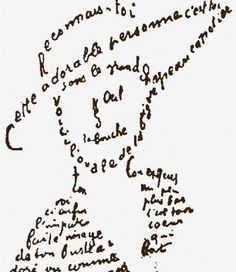 Reconnais-toi
Cette adorable personne c'est toi
Sous le grand chapeau canotier
Œil
Nez
la bouche
Voici l'ovale de ta figure
Ton
Cou exquis
voi
ci enfin
l'impar
faite image
de ton buste a
doré vu comme
un peu
plus bas
c'est ton
coeur
qui
bat